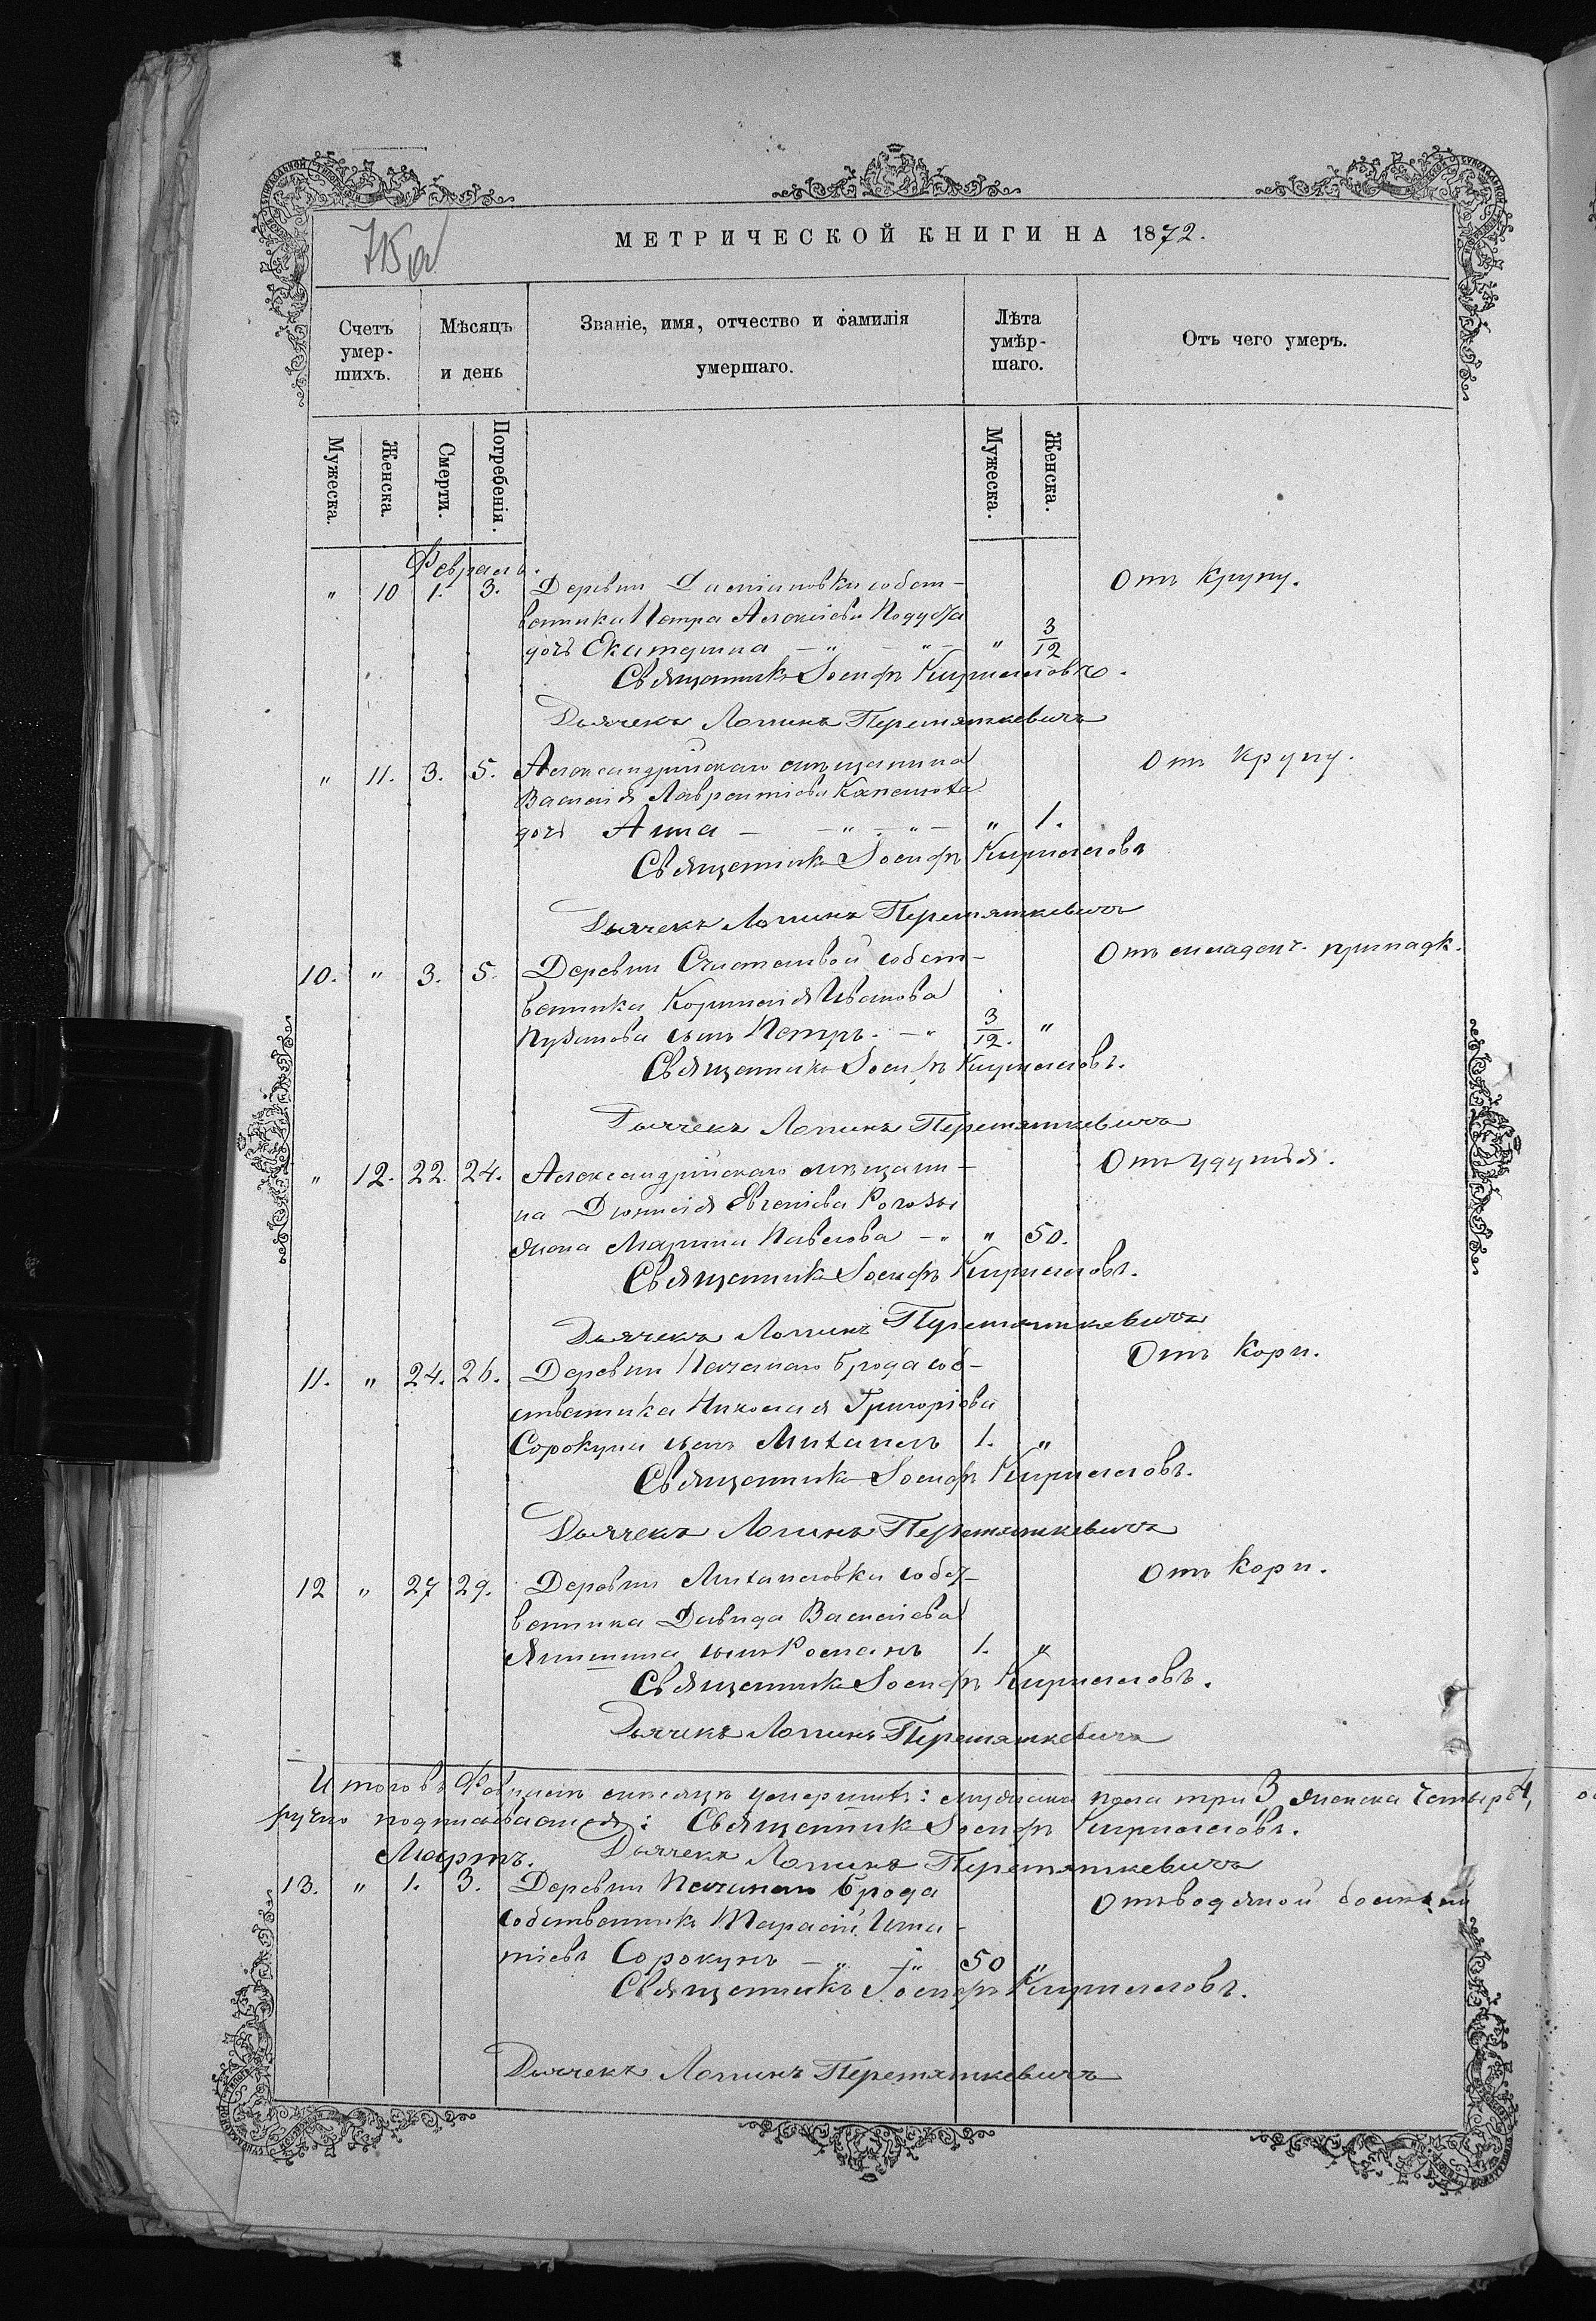 МЕТРИЧЕСКОЙ КНИГИ НА 1872.
Счетъ умер-шихъ.
Мѣсяцъ и день
Званіе, имя, отчество и фамилія умершаго.
Лѣта умѣр-шаго.
Отъ чего умеръ.
Мужеска. Женска. Смерти. Погребенія. Мужеска. Женска.
Февраль.
" 10 1. 3. Деревни собст- Отъ крупу.
венника Петра Алексіева
дочь Екатерина — " — " — " 3/12
Священникъ Іосифъ Кирилловъ.
Дьячекъ Логинъ Перетяткевичъ
" 11. 3. 5. Александрійскаго мѣщанина Отъ крупу.
Василія Лаврентіева
дочь Анна — — " — " — " 1.
Священникъ Іосифъ Кирилловъ
Дьячекъ Логинъ Перетяткевичъ
10. " 3. 5. Деревни Счастливой собст- Отъ младенч. припадк.
венника Корнилія Иванова
Пузанова сынъ Петръ. — " 3/12. "
Священникъ Іосифъ Кирилловъ.
Дьячекъ Логинъ Перетяткевичъ
" 12. 22. 24. Александрійскаго мѣщани- Отъ удушья.
на Діонисія Евгеніева Рогозы
жена Марина Павлова — " " 50.
Священникъ Іосифъ Кирилловъ.
Дьячекъ Логинъ Перетяткевичъ
11. " 24. 26. Деревни Печанаго Брода соб- Отъ кори.
ственника Николая Григоріева
Сорокуна сынъ Михаилъ 1. "
Священникъ Іосифъ Кирилловъ.
Дьячекъ Логинъ Перетяткевичъ
12 " 27 29. Деревни Михайловки собст- Отъ кори.
венника Давида Василіева
сынъ Романъ 1. "
Священникъ Іосифъ Кирилловъ.
Дьячекъ Логинъ Перетяткевичъ
Итого въ Февралѣ мѣсяцѣ умершихъ: мужеска пола три 3, женска четыре 4,
ручно подписываемся: Священникъ Іосифъ Кирилловъ.
Дьячекъ Логинъ Перетяткевичъ
Мартъ.
13. " 1. 3. Деревни Печанаго Брода Отъ водяной болѣзни
собственникъ Тарасій Игна-
тіевъ Сорокунъ — " — " 50 "
Священникъ Іосифъ Кирилловъ.
Дьячекъ Логинъ Перетяткевичъ